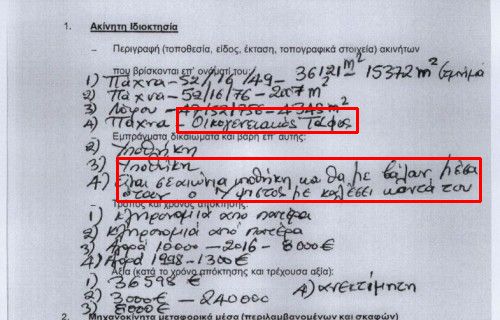 1. Ακίνητη Ιδιοκτησία
– Περιγραφή (τοποθεσία, είδος, έκταση, τοπογραφικά στοιχεία) ακινήτων
που βρίσκονται επ' ονόματί του:
1) Πάχνα - 52/16/49 - 36121 m² - 15372 m² (τμήμα
2) Πάχνα - 52/16/76 - 2007 m²
3) Λόφου - 47/52/756 - 4348 m²
4) Πάχνα - Οικογενειακός Τάφος
Εμπράγματα δικαιώματα και βάρη επ' αυτής:
2) Υποθήκη
3) Υποθήκη
4) Είναι σε αιώνια υποθήκη και θα με βάλουν μέσα
όταν ο Ύψιστος με καλέσει κοντά του
– Τρόπος και χρόνος απόκτησης:
1) Κληρονομία από πατέρα
2) Κληρονομία από πατέρα
3) Αγορά 10000 - 2016 - 8000€
4) Αγορά 1998 - 1300€
Αξία (κατά το χρόνο απόκτησης και τρέχουσα αξία):
1) 36598 € 4) ανεκτίμητη
2) 3000€ - 240000
3) 8000€
2. Μηχανοκίνητα μεταφορικά μέσα (περιλαμβανομένων και σκαφών)